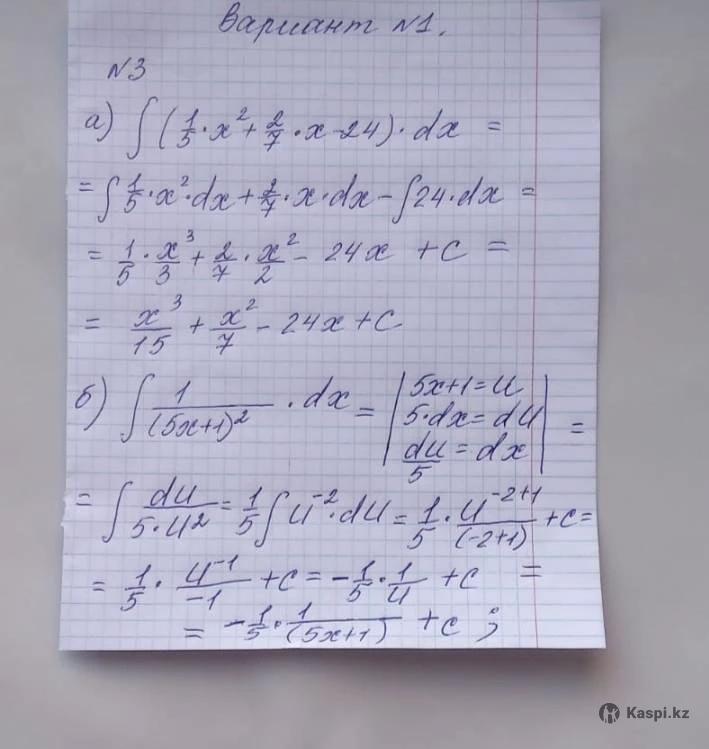 Вариант №1.
№3
а) ∫(1/5·x²+2/7·x-24)·dx =
=∫1/5·x²·dx+2/7·x·dx-∫24·dx=
=1/5·x³/3+2/7·x²/2-24x+c=
=x³/15+x²/7-24x+C
б) ∫1/(5x+1)²·dx=|5x+1=u
5·dx=du
du/5=dx|=
=∫du/5·u²=1/5∫u⁻²·du=1/5·u⁻²⁺¹/(-2+1)+c=
=1/5·u⁻¹/-1+c=-1/5·1/u+c=
=-1/5·1/(5x+1)+c;
Kaspi.kz